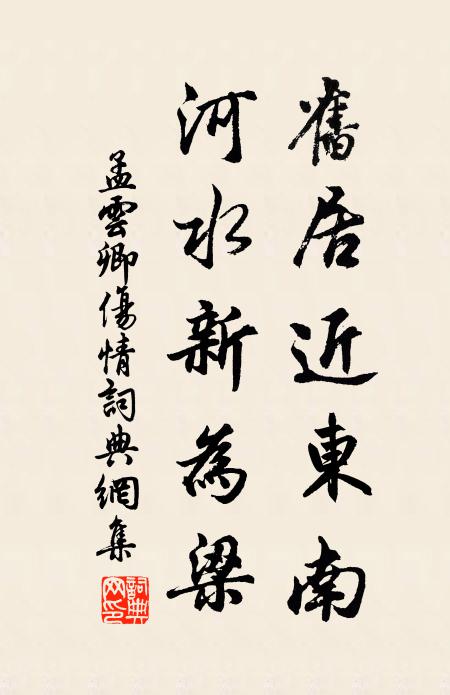 舊居近東南
河水新為梁
孟雲卿傷情詞典網集
詞典網印